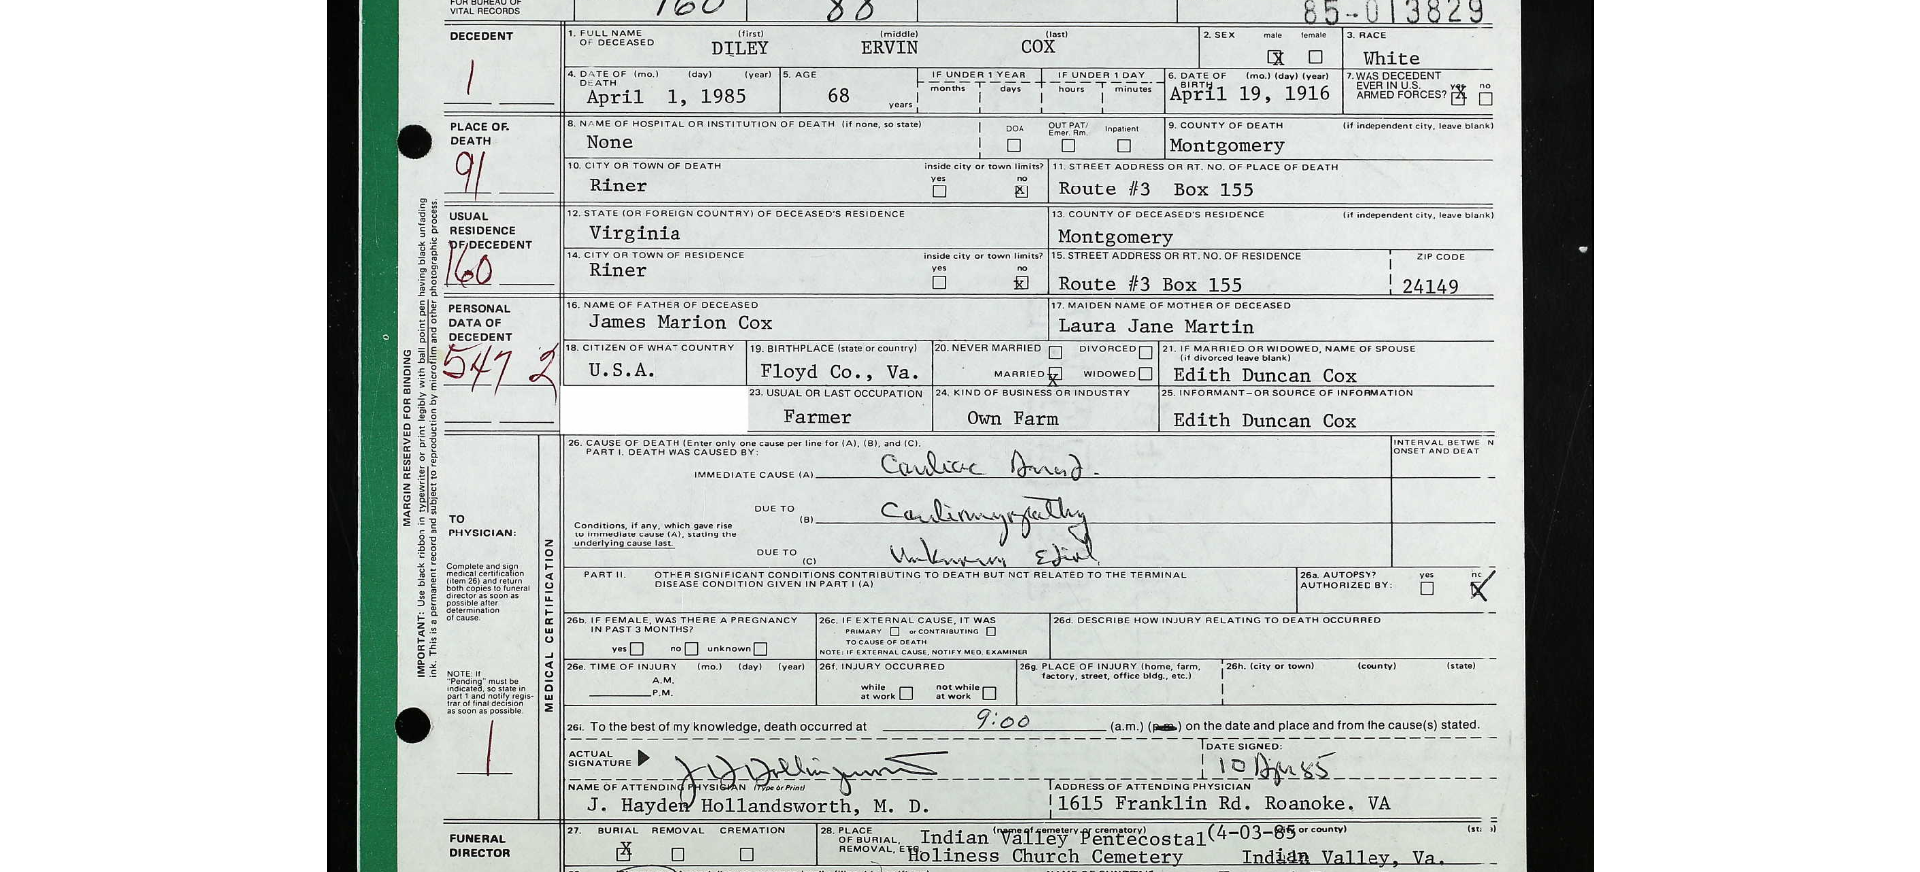 FOR BUREAU OF
VITAL RECORDS
160
88
85-013829
DECEDENT
1
1. FULL NAME OF DECEASED (first) (middle) (last)
DILEY ERVIN COX
2. SEX male female
X
3. RACE
White
4. DATE OF DEATH (mo.) (day) (year)
April 1, 1985
5. AGE
68 years
IF UNDER 1 YEAR
months days
IF UNDER 1 DAY
hours minutes
6. DATE OF BIRTH (mo.) (day) (year)
April 19, 1916
7. WAS DECEDENT EVER IN U.S. ARMED FORCES? yes no
X
PLACE OF DEATH
91
8. NAME OF HOSPITAL OR INSTITUTION OF DEATH (if none, so state)
None
DOA OUT PAT/ Emer. Rm. Inpatient
9. COUNTY OF DEATH (if independent city, leave blank)
Montgomery
10. CITY OR TOWN OF DEATH inside city or town limits? yes no
Riner x
11. STREET ADDRESS OR RT. NO. OF PLACE OF DEATH
Route #3 Box 155
USUAL RESIDENCE OF DECEDENT
160
12. STATE (OR FOREIGN COUNTRY) OF DECEASED'S RESIDENCE
Virginia
13. COUNTY OF DECEASED'S RESIDENCE (if independent city, leave blank)
Montgomery
14. CITY OR TOWN OF RESIDENCE inside city or town limits? yes no
Riner x
15. STREET ADDRESS OR RT. NO. OF RESIDENCE ZIP CODE
Route #3 Box 155 24149
PERSONAL DATA OF DECEDENT
547 2
16. NAME OF FATHER OF DECEASED
James Marion Cox
17. MAIDEN NAME OF MOTHER OF DECEASED
Laura Jane Martin
18. CITIZEN OF WHAT COUNTRY
U.S.A.
19. BIRTHPLACE (state or country)
Floyd Co., Va.
20. NEVER MARRIED DIVORCED
MARRIED X WIDOWED
21. IF MARRIED OR WIDOWED, NAME OF SPOUSE
(if divorced leave blank)
Edith Duncan Cox
23. USUAL OR LAST OCCUPATION
Farmer
24. KIND OF BUSINESS OR INDUSTRY
Own Farm
25. INFORMANT-OR SOURCE OF INFORMATION
Edith Duncan Cox
MARGIN RESERVED FOR BINDING
IMPORTANT: Use black ribbon in typewriter or print legibly with ball point pen having black unfading
ink. This is a permanent record and subject to reproduction by microfilm and other photographic process.
TO PHYSICIAN:
Complete and sign
medical certification
(item 26) and return
both copies to funeral
director as soon as
possible after
determination
of cause.
NOTE: If
"Pending" must be
indicated, so state in
part 1 and notify regis-
trar of final decision
as soon as possible.
1
MEDICAL CERTIFICATION
26. CAUSE OF DEATH (Enter only one cause per line for (A), (B), and (C).
PART I. DEATH WAS CAUSED BY:
INTERVAL BETWE N
ONSET AND DEAT
IMMEDIATE CAUSE (A) Cardiac Arrest.
DUE TO (B) Cardiomyopathy
Conditions, if any, which gave rise
to immediate cause (A), stating the
underlying cause last.
DUE TO (C) Unknown Etiol.
PART II. OTHER SIGNIFICANT CONDITIONS CONTRIBUTING TO DEATH BUT NOT RELATED TO THE TERMINAL
DISEASE CONDITION GIVEN IN PART I (A)
26a. AUTOPSY? AUTHORIZED BY: yes no
X
26b. IF FEMALE, WAS THERE A PREGNANCY
IN PAST 3 MONTHS?
yes no unknown
26c. IF EXTERNAL CAUSE, IT WAS
PRIMARY or CONTRIBUTING
TO CAUSE OF DEATH
NOTE: IF EXTERNAL CAUSE, NOTIFY MED. EXAMINER
26d. DESCRIBE HOW INJURY RELATING TO DEATH OCCURRED
26e. TIME OF INJURY (mo.) (day) (year)
A.M.
P.M.
26f. INJURY OCCURRED
while at work not while at work
26g. PLACE OF INJURY (home, farm,
factory, street, office bldg., etc.)
26h. (city or town) (county) (state)
26i. To the best of my knowledge, death occurred at 9:00 (a.m.) on the date and place and from the cause(s) stated.
ACTUAL SIGNATURE
DATE SIGNED:
10 Apr 85
NAME OF ATTENDING PHYSICIAN (Type or Print)
J. Hayden Hollandsworth, M. D.
ADDRESS OF ATTENDING PHYSICIAN
1615 Franklin Rd. Roanoke. VA
FUNERAL DIRECTOR
27. BURIAL REMOVAL CREMATION
X
28. PLACE OF BURIAL, REMOVAL, ETC. (name of cemetery or crematory) (city or county)
Indian Valley Pentecostal (4-03-85
Holiness Church Cemetery Indian Valley, Va.